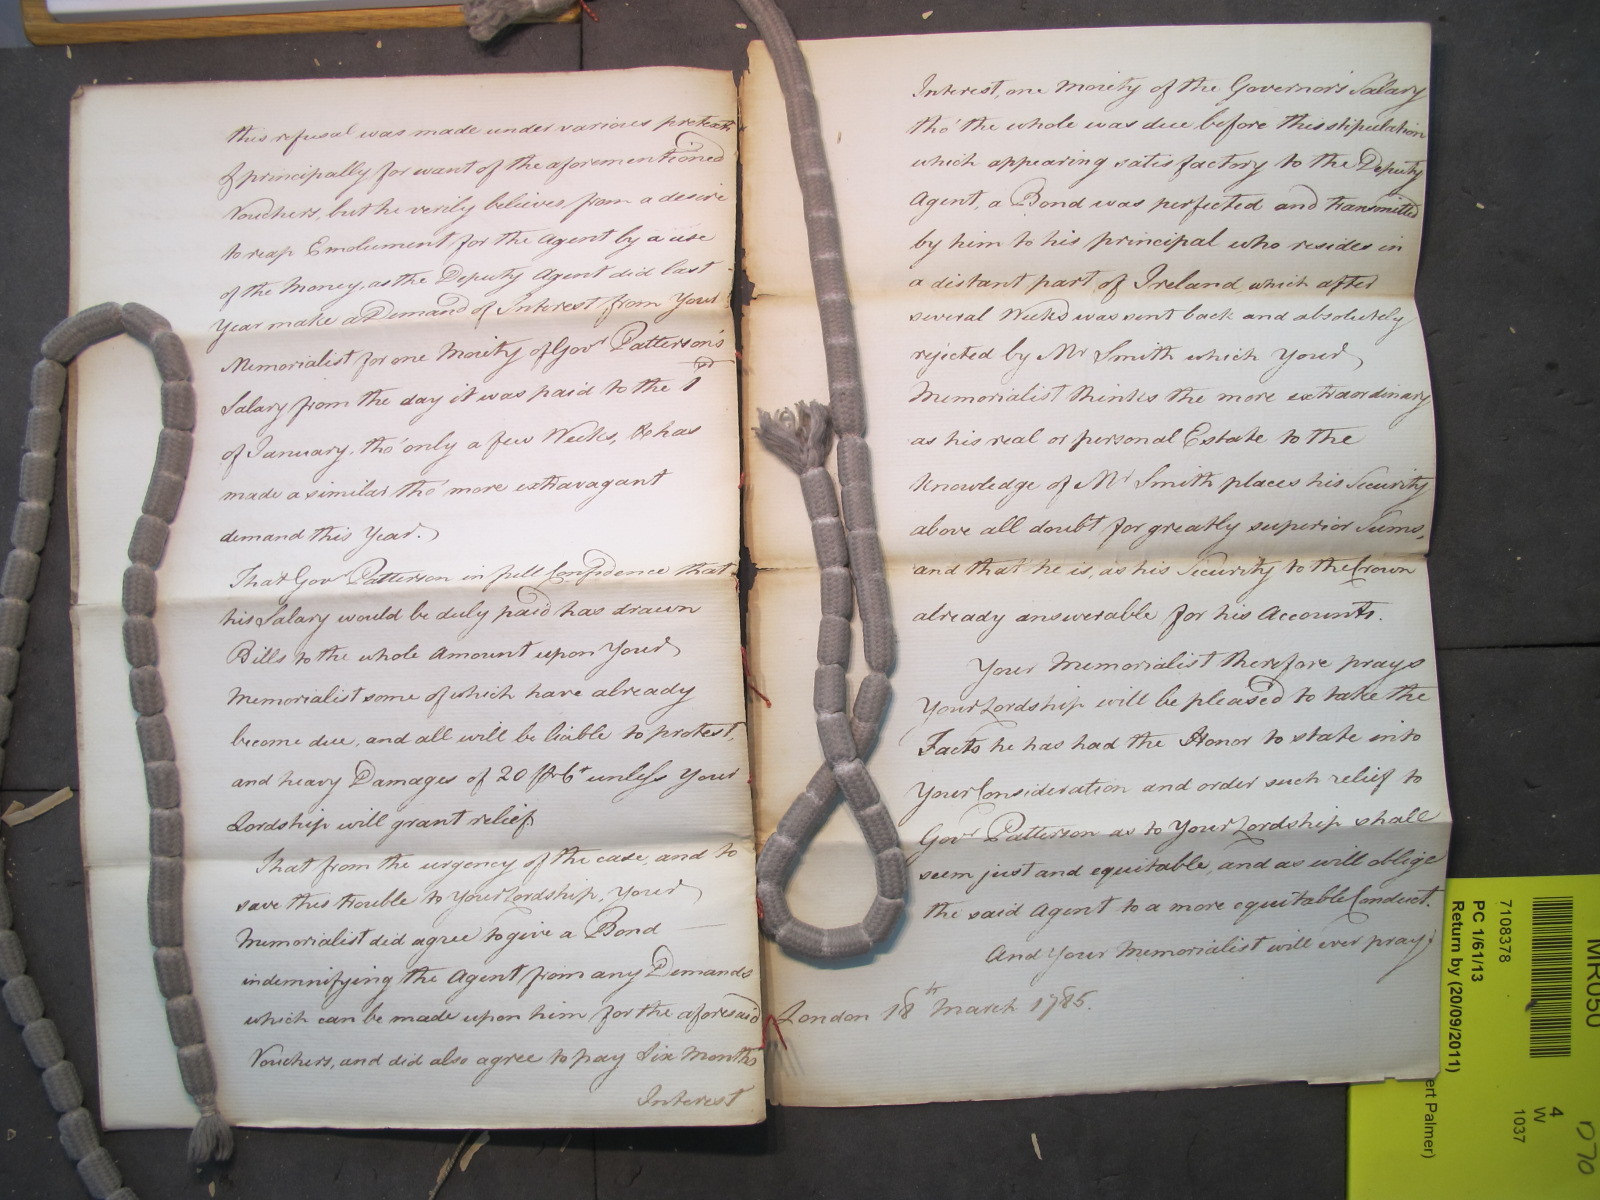 this refusal was made under various pretexts
& principally for want of the aforementioned
Vouchers, but he verily believes from a desire
to reap Emolument for the Agent by a use
of the Money, as the Deputy Agent did last
Year make a Demand of Interest from Your
Memorialist for one Moiety of Govr. Patterson's
Salary from the day it was paid to the 1st
of January. tho' only a few Weeks, & has
made a similar tho' more extravagant
demand this Year.
That Govr. Patterson in full Confidence that
his Salary would be duly paid has drawn
Bills to the whole Amount upon Your
Memorialist some of which have already
become due, and all will be liable to protest,
and heavy Damages of 20 PrCt unless Your
Lordship will grant relief.
That from the urgency of the case, and to
save this trouble to Your Lordship, Your
Memorialist did agree to give a Bond
indemnifying the Agent from any Demands
which can be made upon him for the aforesaid
Vouchers, and did also agree to pay Six Months
Interest
Interest, one Moiety of the Governor's Salary
tho' the whole was due before this stipulation
which appearing satisfactory to the Deputy
Agent, a Bond was perfected and transmitted
by him to his principal who resides in
a distant part of Ireland, which after
several Weeks was sent back and absolutely
rejected by Mr Smith which Your
Memorialist thinks the more extraordinary
as his real or personal Estate to the
Knowledge of Mr Smith places his Security
above all doubt for greatly superior Sums,
and that he is, as his Security to the Crown
already answerable for his Accounts.
Your Memorialist therefore prays
Your Lordship will be pleased to take the
Facts he has had the Honor to state into
Your Consideration and order such relief to
Govr. Patterson as to Your Lordship shall
seem just and equitable, and as will oblige
the said Agent to a more equitable Conduct.
And Your Memorialist will ever pray;
London 18th March 1785.
MR050
7108378
PC 1/61/13
Return by (20/09/2011)
ert Palmer)
4
W
1037
D70